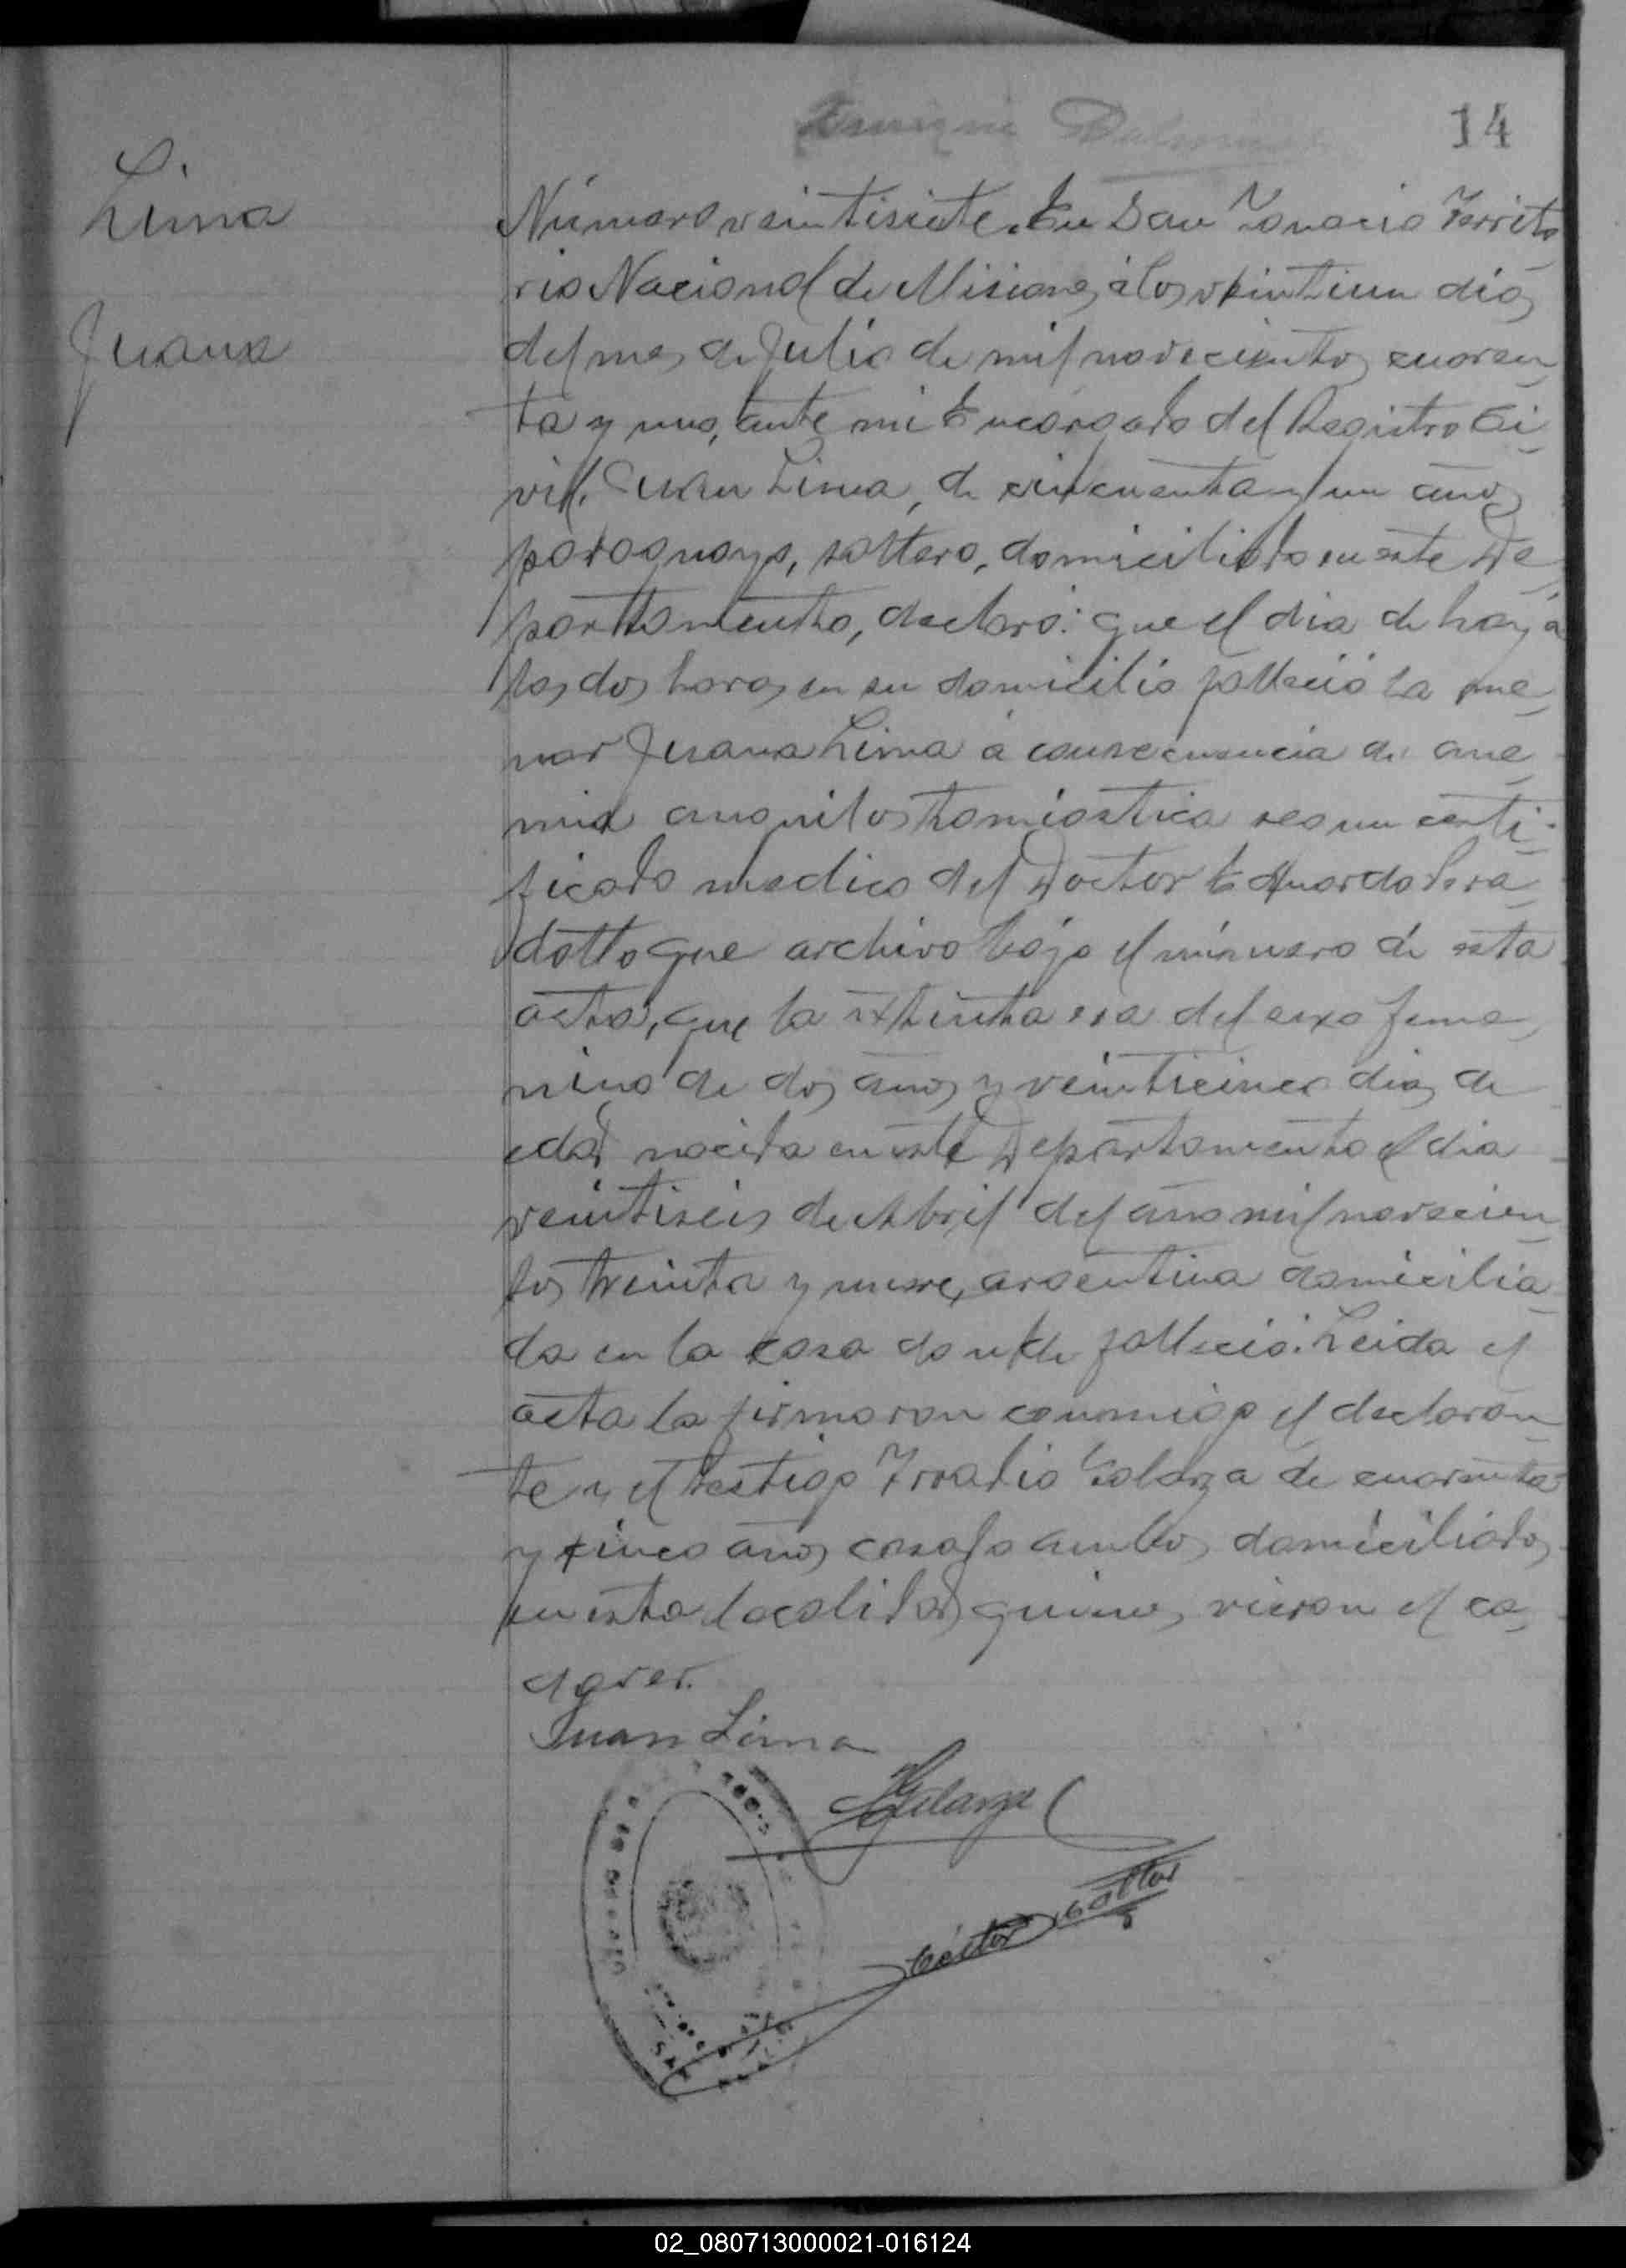 14
Lima
Juana
Número veintisiete. En San Ignacio Territo
rio Nacional de Misiones, á los veintiun dias
del mes de Julio de mil novecientos cuaren
ta y uno, ante mi Encargado del Registro Ci
vil. Juan Lima, de cincuenta y un años
paraguayo, soltero, domiciliado en este De
partamento, declaró: que el dia de hoy á
las dos horas en su domicilio falleció la me
nor Juana Lima á consecuencia de ane
mia anquilostomiastica segun certi
ficado medico del Doctor Eduardo
que archivo bajo el número de esta
acta, que la extinta era del sexo feme
nino de dos años y veinticinco dias de
edad nacida en este Departamento el dia
veintiseis de Abril del año mil novecien
tos treinta y nueve, argentina domicilia
da en la casa donde falleció. Leida el
acta la firmaron conmigo el declaran
te y el testigo Galarza de cuarenta
y cinco años casado ambos domiciliados
en esta localidad quienes vieron el ca
daver.
Juan Lima
Galarza
02_080713000021-016124